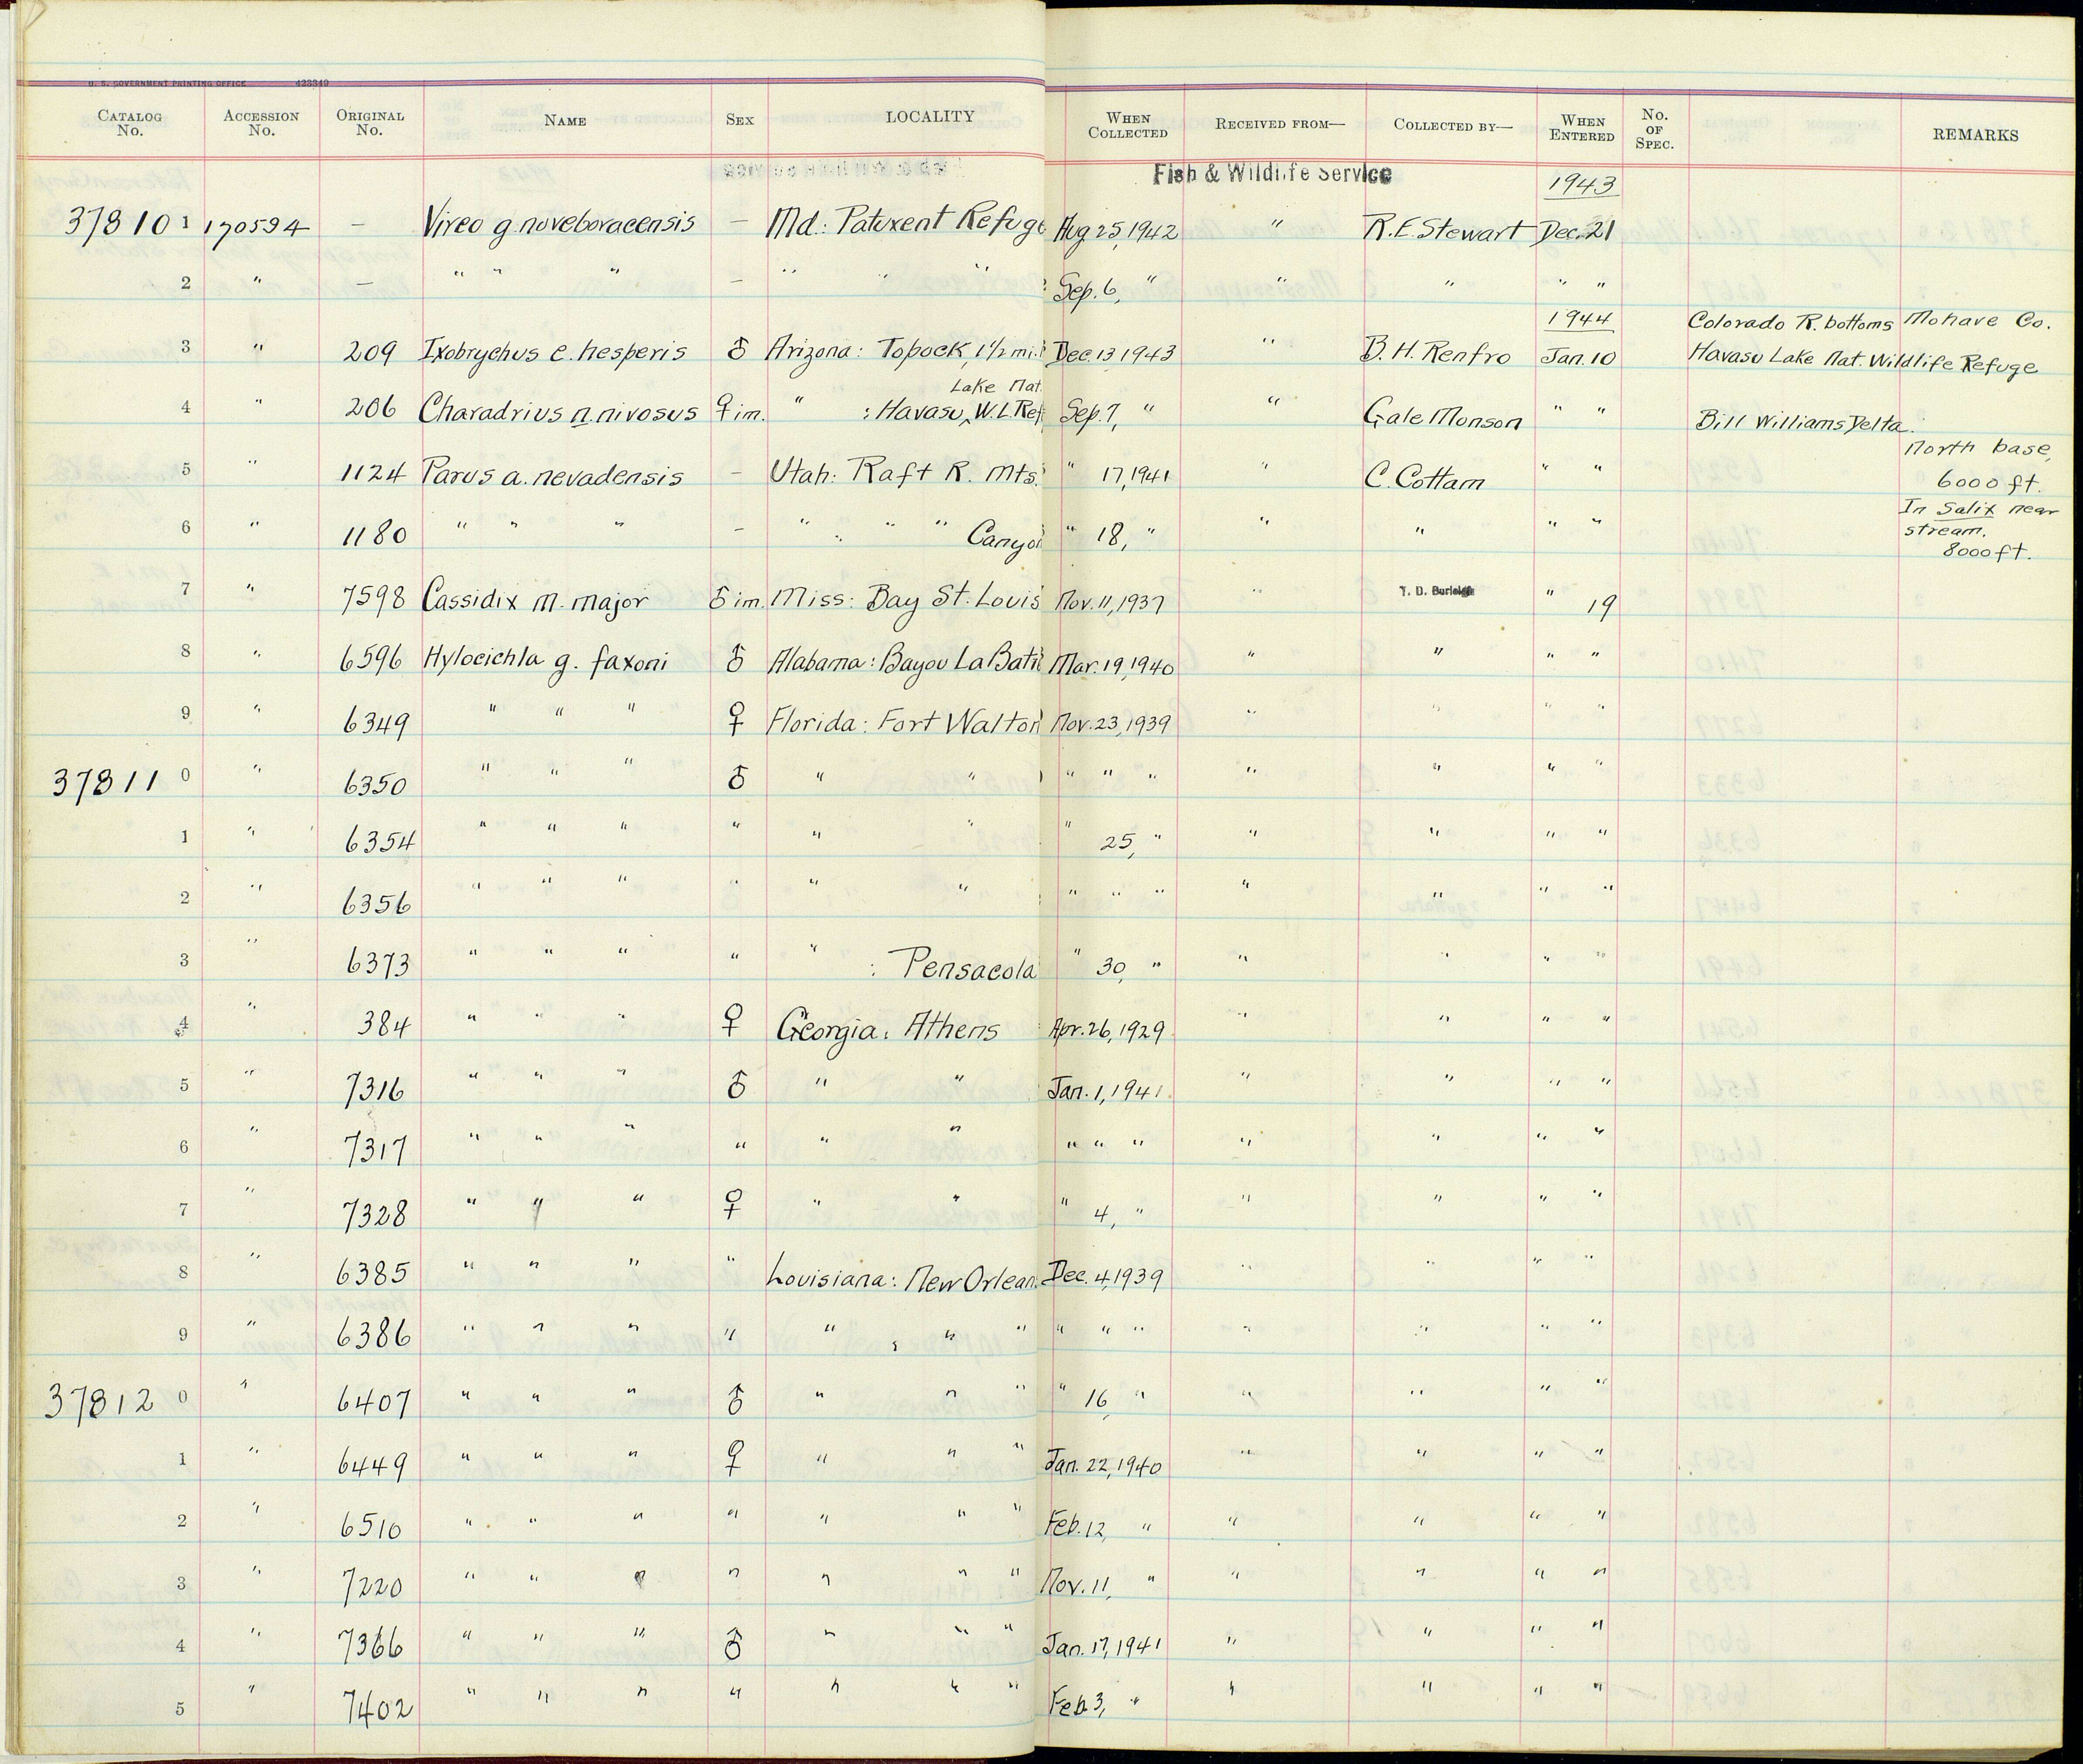 U. S. GOVERNMENT PRINTING OFFICE 423349
CATALOG No. ACCESSION No. ORIGINAL No. NAME SEX LOCALITY WHEN COLLECTED RECEIVED FROM— COLLECTED BY— WHEN ENTERED No. OF SPEC. REMARKS
Fish & Wildlife Service 1943
37810 1 170594 — Vireo g. noveboracensis — Md.: Patuxent Refuge Aug. 25, 1942 " R.E. Stewart Dec. 21
2 " — " " " — " " " Sep. 6, " " " " "
1944 Colorado R. bottoms Mohave Co.
3 " 209 Ixobrychus e. hesperis ♂ Arizona: Topock, 1½ mi. Dec. 13 1943 " B. H. Renfro Jan. 10 Havasu Lake Nat. Wildlife Refuge
Lake Nat.
4 " 206 Charadrius n. nivosus ♀ im. " : Havasu ^ W. L. Ref. Sep. 7, " " Gale Monson " " Bill Williams Delta.
North base,
5 " 1124 Parus a. nevadensis — Utah: Raft R. Mts. " 17, 1941 " C. Cottam " " 6000 ft.
In Salix near
6 " 1180 " " " — " : " " Canyon " 18, " " " " " stream.
8000 ft.
7 " 7598 Cassidix m. major ♂ im. Miss: Bay St. Louis Nov. 11, 1937 " T. D. Burleigh " 19
8 " 6596 Hylocichla g. faxoni ♂ Alabama: Bayou La Batr Mar. 19, 1940 " " " "
9 " 6349 " " " ♀ Florida: Fort Walton Nov. 23, 1939 " " " "
37811 0 " 6350 " " " ♂ " " " " " " " " "
1 " 6354 " " " " " " " 25, " " " " "
2 " 6356 " " " " " " " " " " " " "
3 " 6373 " " " " " : Pensacola " 30, " " " " "
4 " 384 " " " ♀ Georgia: Athens Apr. 26, 1929 " " " "
5 " 7316 " " " ♂ " " Jan. 1, 1941 " " " "
6 " 7317 " " " " " " " " " " " " "
7 " 7328 " " " ♀ " " " 4, " " " " "
8 " 6385 " " " " Louisiana: New Orleans Dec. 4, 1939 " " " "
9 " 6386 " " " " " : " " " " " " " " "
37812 0 " 6407 " " " ♂ " " " " 16, " " " " "
1 " 6449 " " " ♀ " " " Jan. 22, 1940 " " " "
2 " 6510 " " " " " " " Feb. 12, " " " " "
3 " 7220 " " " " " " " Nov. 11, " " " " "
4 " 7366 " " " ♂ " " " Jan. 17, 1941 " " " "
5 " 7402 " " " " " " " Feb. 3, " " " " "